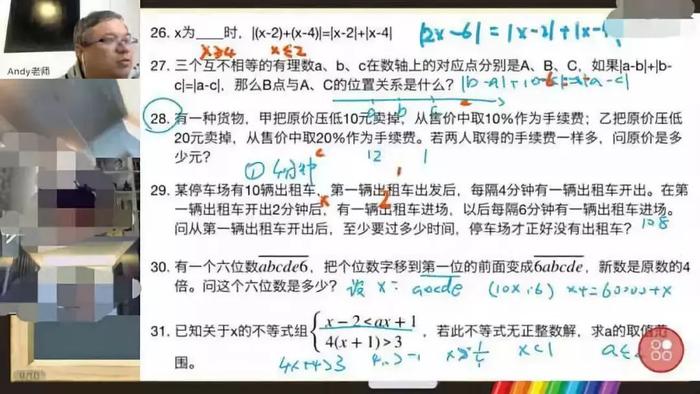 Andy老师
26. x为____时，|(x-2)+(x-4)|=|x-2|+|x-4|
|2x-6|=|x-2|+|x-
x≥4 x≤2
27. 三个互不相等的有理数a、b、c在数轴上的对应点分别是A、B、C，如果|a-b|+|b-
c|=|a-c|，那么B点与A、C的位置关系是什么？
a b c
28. 有一种货物，甲把原价压低10元卖掉，从售价中取10%作为手续费；乙把原价压低
20元卖掉，从售价中取20%作为手续费。若两人取得的手续费一样多，问原价是多
少元？ 12 1
① 4分钟
29. 某停车场有10辆出租车，第一辆出租车出发后，每隔4分钟有一辆出租车开出。在第
一辆出租车开出2分钟后，有一辆出租车进场，以后每隔6分钟有一辆出租车进场。
问从第一辆出租车开出后，至少要过多少时间，停车场才正好没有出租车？ 108
30. 有一个六位数abcde6，把个位数字移到第一位的前面变成6abcde，新数是原数的4
倍。问这个六位数是多少？ 设 x = abcde (10x+6) x4=60000+x
31. 已知关于x的不等式组{x-2<ax+1
4(x+1)>3，若此不等式无正整数解，求a的取值范
围。 4x+4>3 x<1